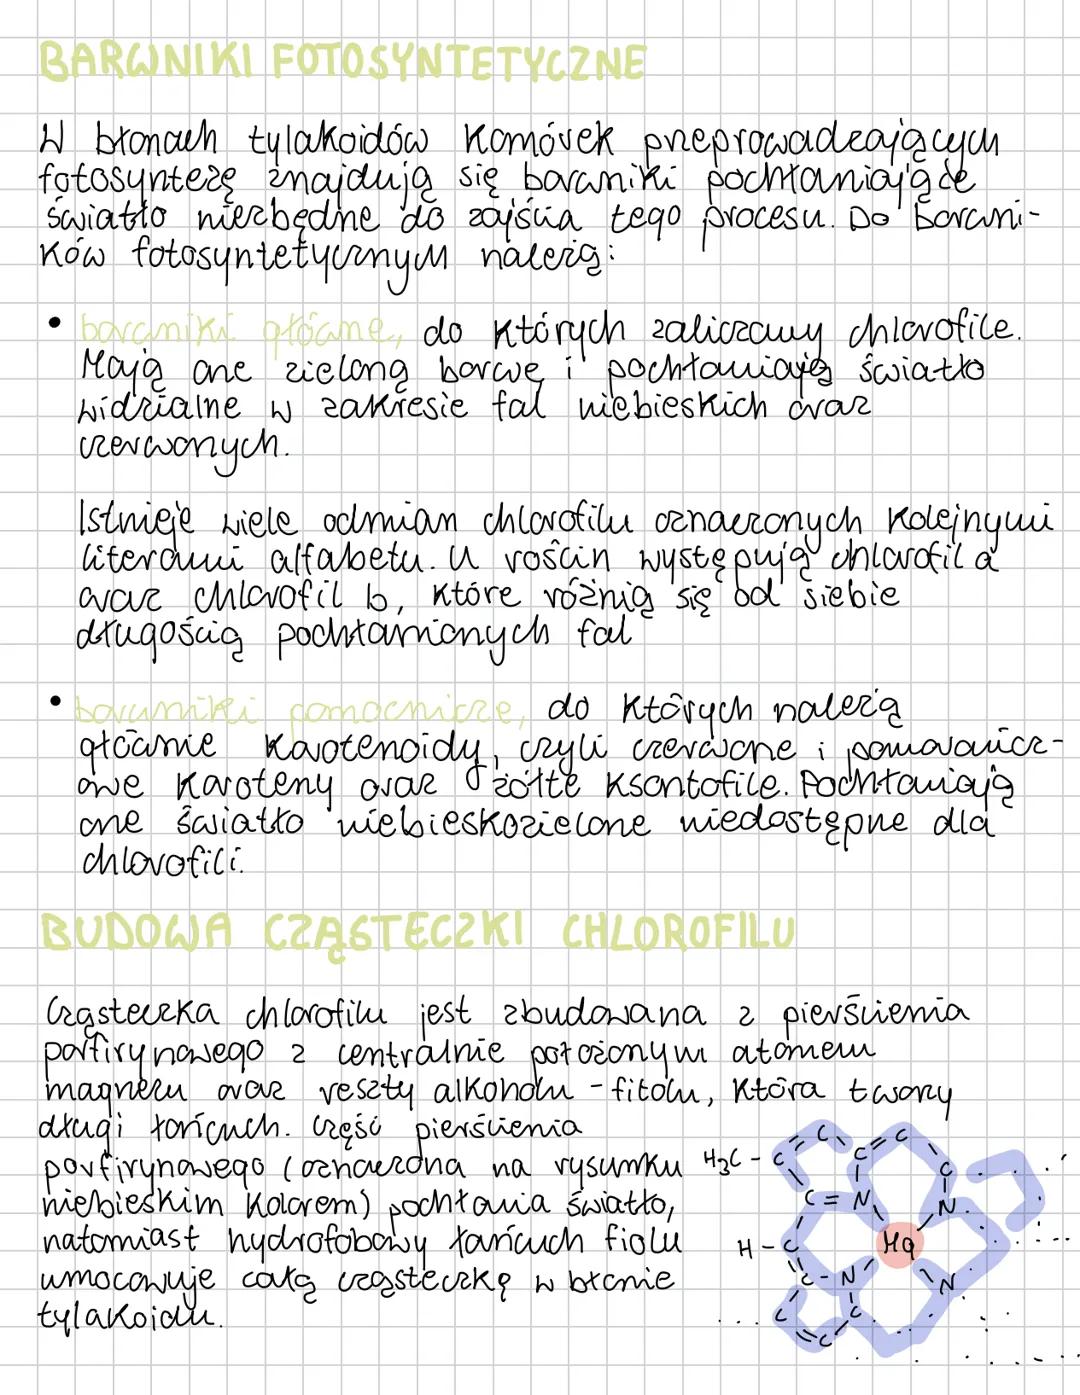 BARWNIKI FOTOSYNTETYCZNE
W błonach tylakoidów komórek przeprowadzających
fotosyntezę znajdują się barwniki pochłaniające
światło niezbędne do zajścia tego procesu. Do barwni-
ków fotosyntetycznych należą:
• barwniki główne, do których zaliczamy chlorofile.
Mają one zieloną barwę i pochłaniają światło
widzialne w zakresie fal niebieskich oraz
czerwonych.
Istnieje wiele odmian chlorofilu oznaczonych kolejnymi
literami alfabetu. U roślin występują chlorofil a
oraz chlorofil b, które różnią się od siebie
długością pochłanianych fal
• barwniki pomocnicze, do których należą
głównie karotenoidy, czyli czerwone i pomarańcz-
owe karoteny oraz żółte ksantofile. Pochłaniają
one światło niebieskozielone niedostępne dla
chlorofili.
BUDOWA CZĄSTECZKI CHLOROFILU
Cząsteczka chlorofilu jest zbudowana z pierścienia
porfirynowego z centralnie położonym atomem
magnezu oraz reszty alkoholu - fitolu, która tworzy
długi łańcuch. Część pierścienia
porfirynowego (oznaczona na rysunku
niebieskim kolorem) pochłania światło,
natomiast hydrofobowy łańcuch fiolu
umocowuje całą cząsteczkę w błonie
tylakoidu.
C C C
H3C - C C C
C = N N
H - C Mg
C - N N
C C
C = C